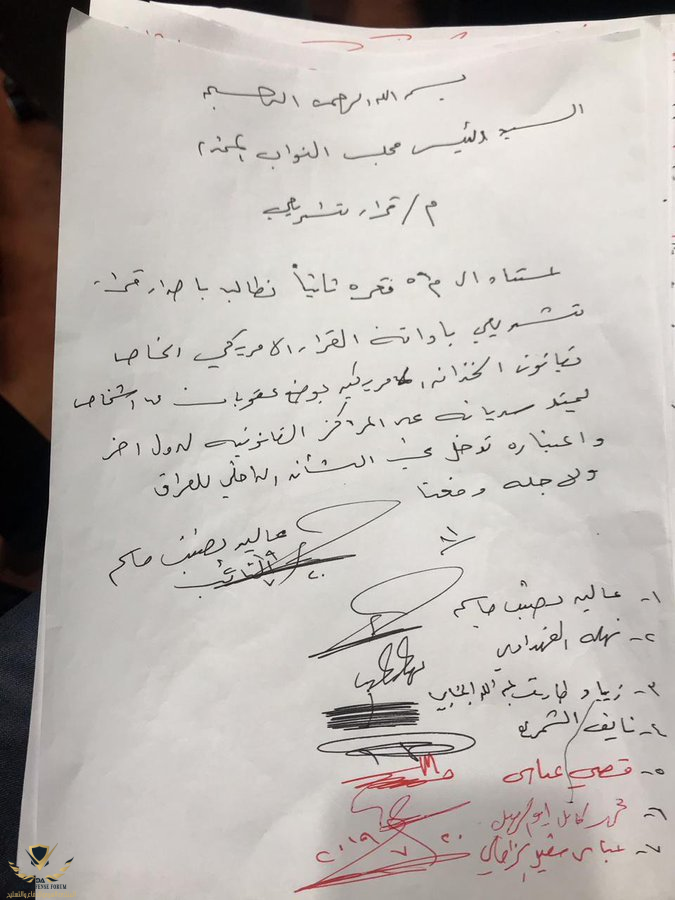 بسم الله الرحمن الرحيم
السيد رئيس مجلس النواب المحترم
م/ قرار تشريعي
استناد ال م ٥٦ فقره ثانياً نطالب باصدار قرار
تشريعي بادانه القرار الامريكي الخاص
بقانون الخزانه الامريكيه بوضع عقوبات على اشخاص
ليمتد سريانه على المراكز القانونيه لدول اخر
واعتباره تدخل في الشأن الداخلي للعراق
ولاجله وقعنا
عاليه نصيف جاسم
النائب
١- عاليه نصيف جاسم
٢- نهله الفهداوي
٣- زياد طارق عبدالله الجنابي
٤- نايف الشمري
٥- قصي عباس
٦- محمد كامل
٧- عباس
٢٠١٩ ٧ ٢٠
DEFENSE FORUM